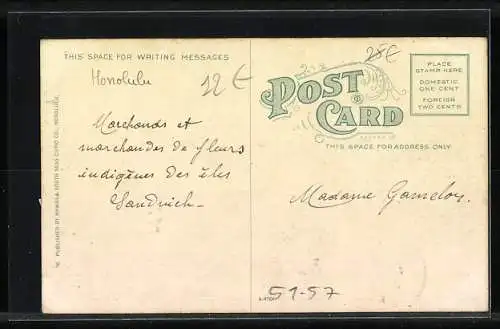 THIS SPACE FOR WRITING MESSAGES
Honolulu
12 €
Marchands et
marchandes de fleurs
indigènes des îles
Sandwich.
28€
POST
CARD
PLACE
STAMP HERE
DOMESTIC
ONE CENT
FOREIGN
TWO CENTS
THIS SPACE FOR ADDRESS ONLY
Madame
59-57
PUBLISHED BY HAWAII & SOUTH SEAS CURIO CO., HONOLULU.